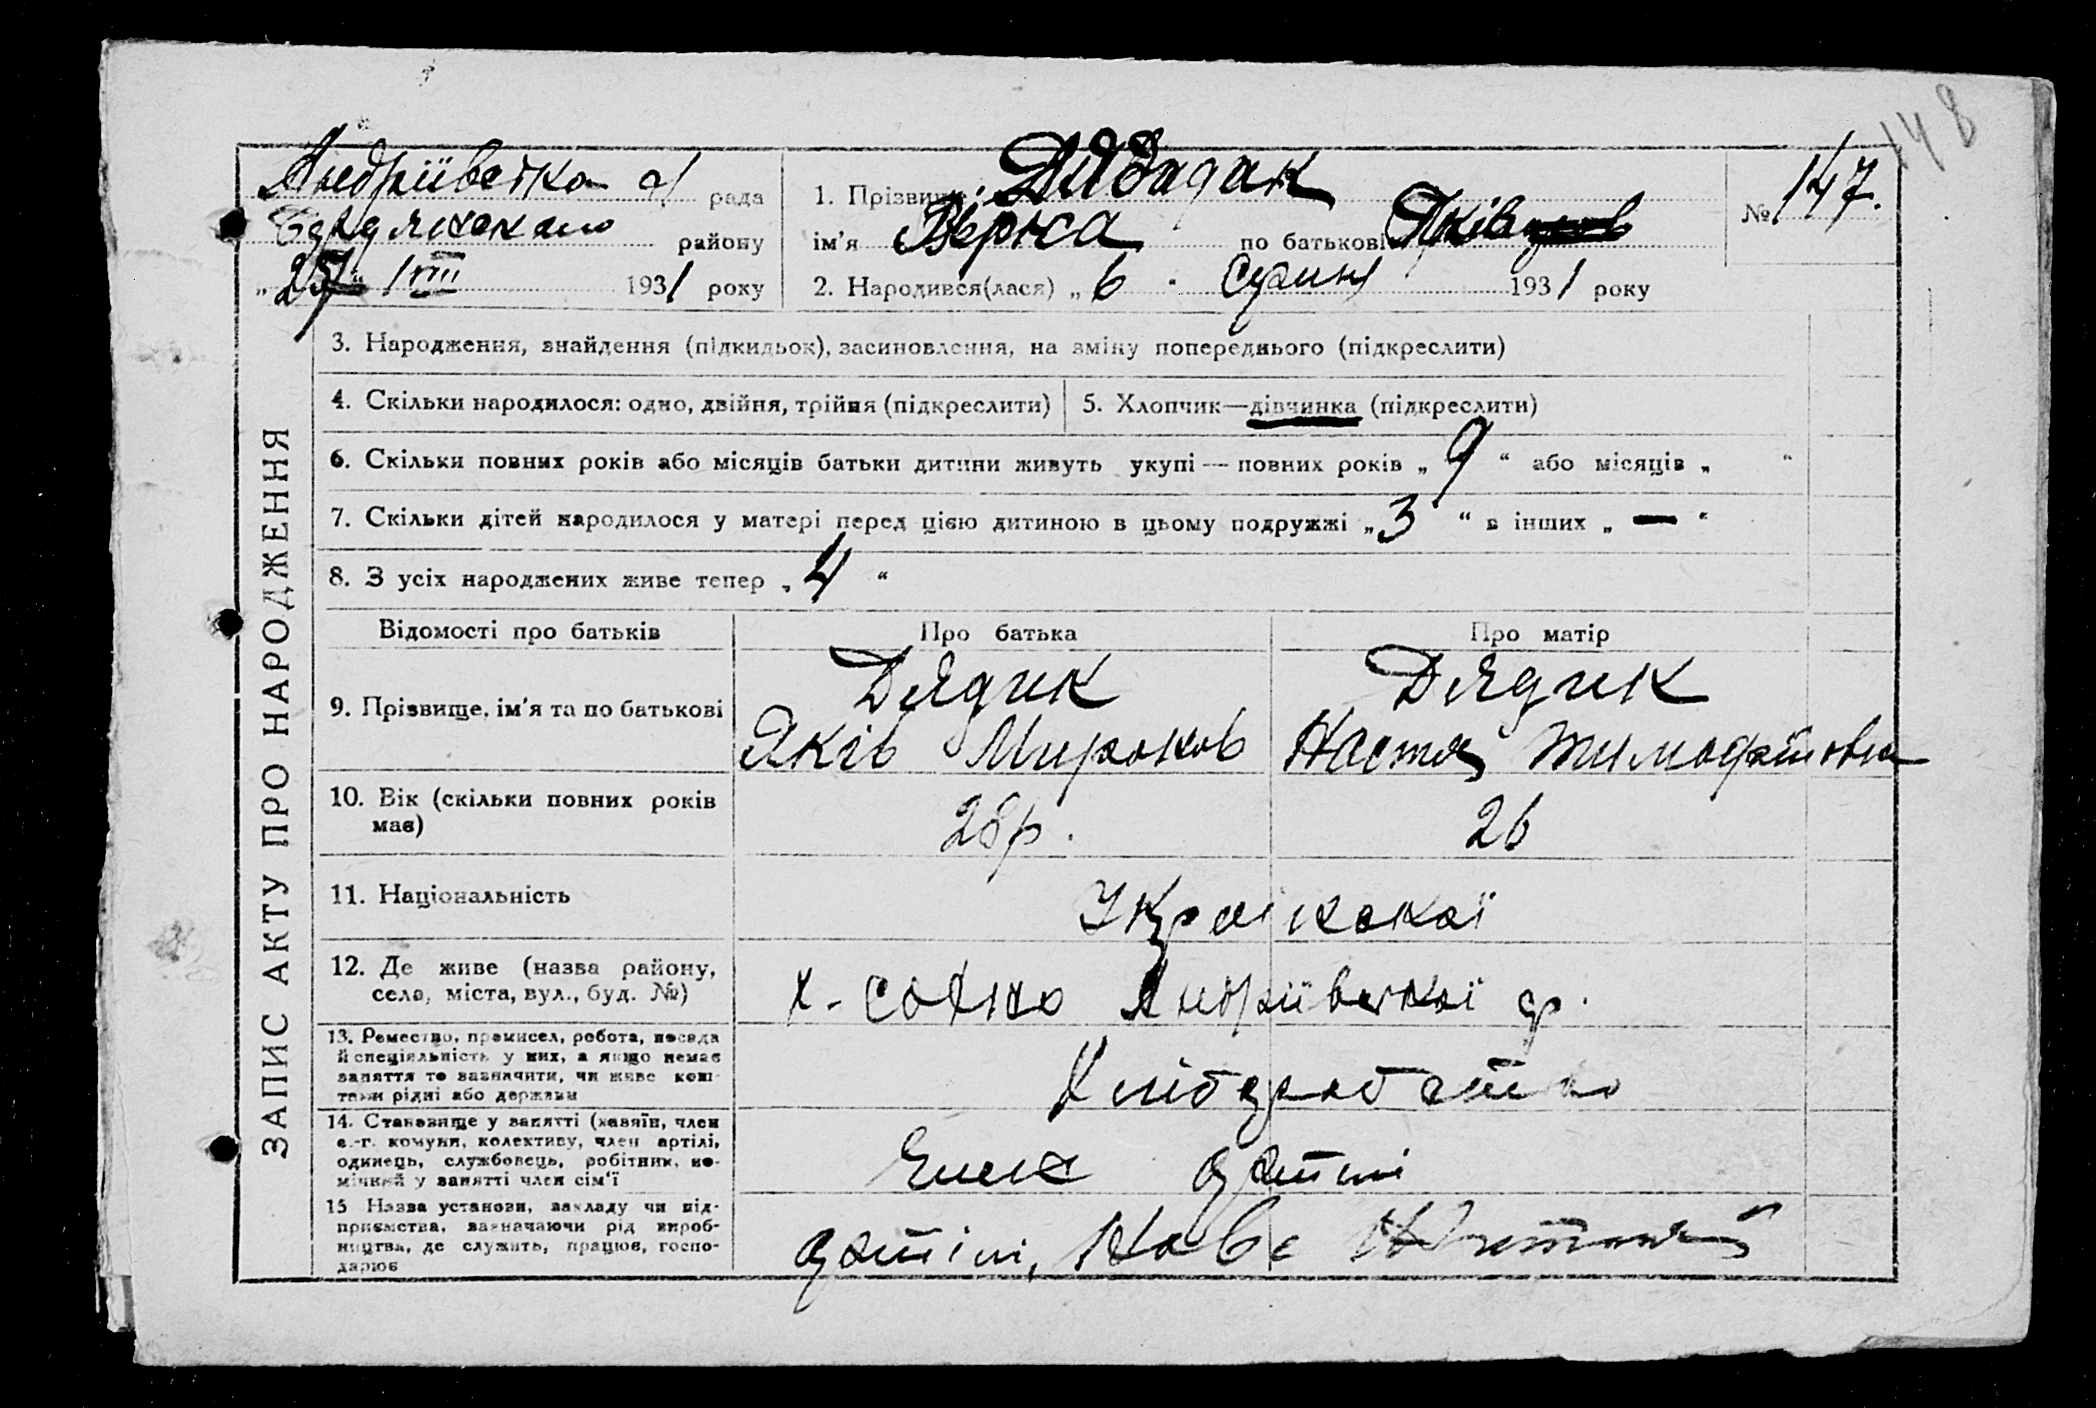 148
Андріївська с/ рада
Бердянського району
„27“ VIII 1931 року
1. Прізвище
ім'я Вірка по батькові Яків
№ 147.
2. Народився(лася) „6 Серпня 1931 року
ЗАПИС АКТУ ПРО НАРОДЖЕННЯ
3. Народження, знайдення (підкидьок), засиновлення, на зміну попереднього (підкреслити)
4. Скільки народилося: одно, двійня, трійня (підкреслити)
5. Хлопчик—дівчинка (підкреслити)
6. Скільки повних років або місяців батьки дитини живуть укупі — повних років „9“ або місяців „ “
7. Скільки дітей народилося у матері перед цією дитиною в цьому подружжі „3“ в інших „—“
8. З усіх народжених живе тепер „4“
Відомості про батьків Про батька Про матір
9. Прізвище, ім'я та по батькові
Дядик
Яків Миронов
Дядик
Настя Тимофіївна
10. Вік (скільки повних років
має)
28р. 26
11. Національність Української
12. Де живе (назва району,
села, міста, вул., буд. №)
х. Андріївської р.
13. Ремество, промисел, робота, посада
й спеціяльність у них, а якщо немає
заняття то зазначити, чи живе кош-
тами рідні або держави
Хліборобство
14. Становище у занятті (хазяїн, член
с.-г. комуни, колективу, член артілі,
одинець, службовець, робітник, по-
мічний у занятті член сім'ї
Член артілі
15 Назва установи, закладу чи під-
приємства, зазначаючи рід вироб-
ництва, де служить, працює, госпо-
дарює
артіли, Нове